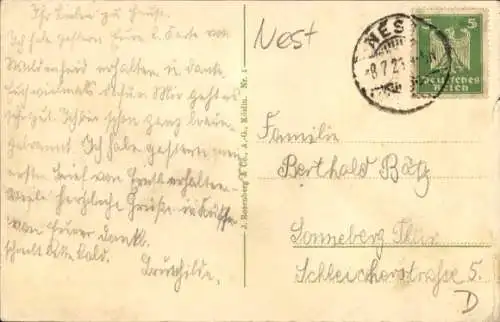 Ihr Lieben zu Hause.
Ich habe gestern Eure 2. Karte von
erhalten u. danke
Euch vielmals dafür. Mir geht es
sehr gut. Ich bin schon ganz braun
gebrannt. Ich habe gestern
ersten Brief von erhalten.
Viele herzliche Grüße u. Küsse
von Eurer dankb.
schreibt bald.
Brunhilde.
J. Rosenberg & Co., A.-G., Köslin. Nr. 1
Nest
NEST
8.7.2
5
Deutsches
Reich
Familie
Berthold Bätz
Sonneberg Thür.
Schleicherstraße 5.
D